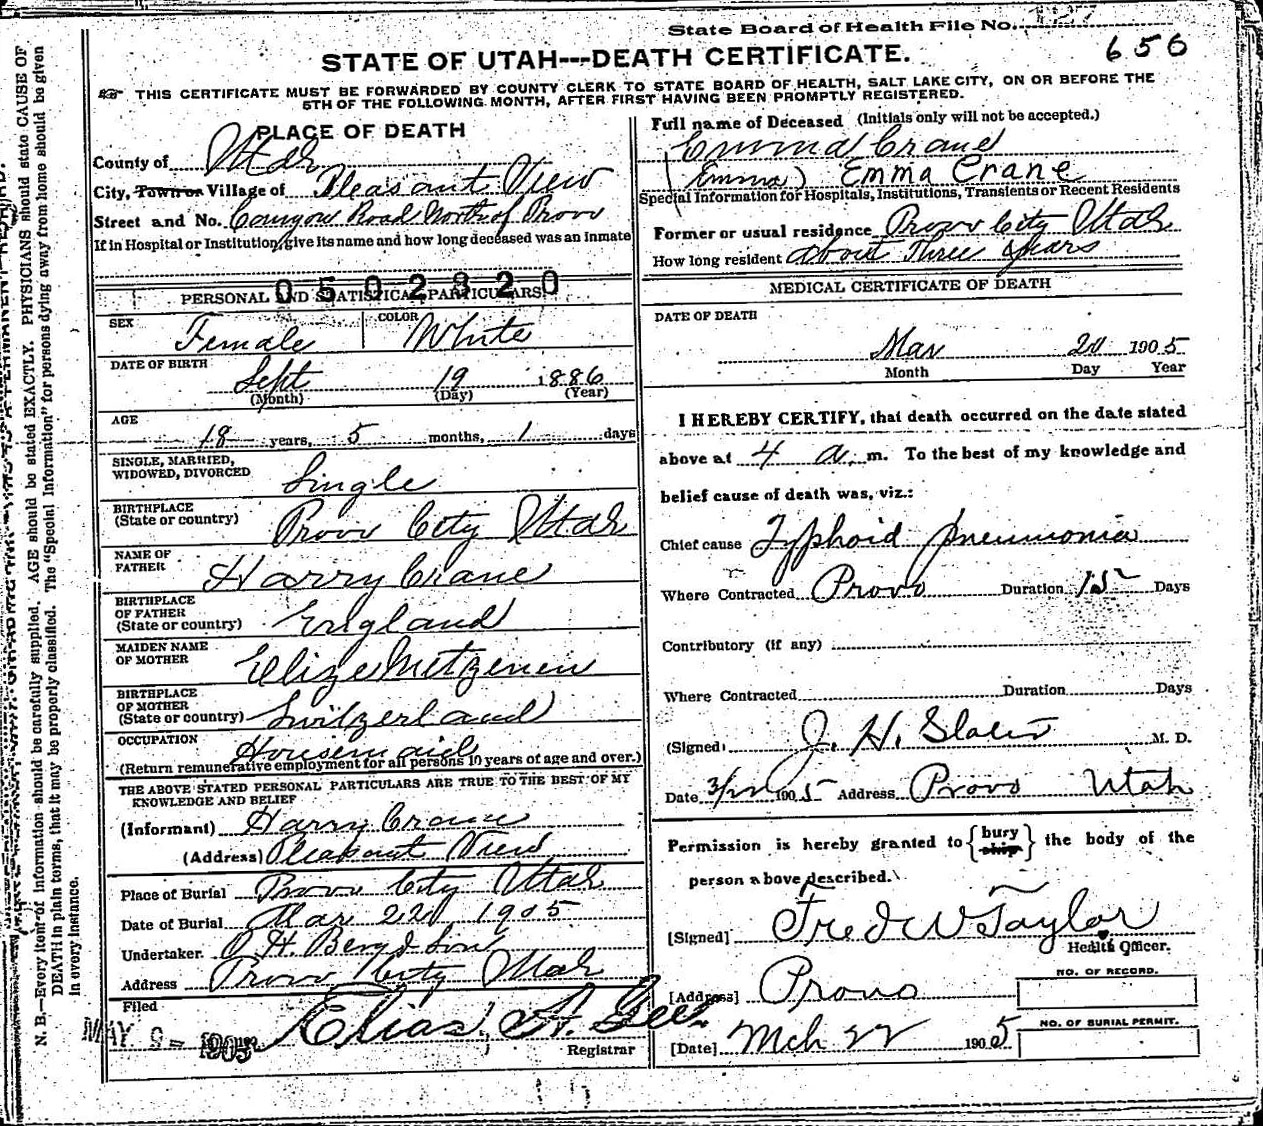 State Board of Health File No. 127
656
STATE OF UTAH---DEATH CERTIFICATE.
THIS CERTIFICATE MUST BE FORWARDED BY COUNTY CLERK TO STATE BOARD OF HEALTH, SALT LAKE CITY, ON OR BEFORE THE
5TH OF THE FOLLOWING MONTH, AFTER FIRST HAVING BEEN PROMPTLY REGISTERED.
PLACE OF DEATH
County of Utah
City, Town or Village of Pleasant View
Street and No. Canyon Road North of Provo
If in Hospital or Institution, give its name and how long deceased was an Inmate
0502820
PERSONAL AND STATISTICAL PARTICULARS
SEX Female COLOR White
DATE OF BIRTH Sept 19 1886
(Month) (Day) (Year)
AGE
18 years, 5 months, 1 days
SINGLE, MARRIED,
WIDOWED, DIVORCED Single
BIRTHPLACE
(State or country) Provo City Utah
NAME OF
FATHER Harry Crane
BIRTHPLACE
OF FATHER
(State or country) England
MAIDEN NAME
OF MOTHER Elize Metzenen
BIRTHPLACE
OF MOTHER
(State or country) Switzerland
OCCUPATION Housemaid
(Return remunerative employment for all persons 10 years of age and over.)
THE ABOVE STATED PERSONAL PARTICULARS ARE TRUE TO THE BEST OF MY
KNOWLEDGE AND BELIEF
(Informant) Harry Crane
(Address) Pleasant View
Place of Burial Provo City Utah
Date of Burial Mar 22d 1905
Undertaker. O. H. Berg & Son
Address Provo City Utah
Filed
MAY 9- 1905 Elias A. Gee.
Registrar
Full name of Deceased (Initials only will not be accepted.)
Emma Crane
(Emma) Emma Crane
Special Information for Hospitals, Institutions, Transients or Recent Residents
Former or usual residence Provo City Utah
How long resident about Three years
MEDICAL CERTIFICATE OF DEATH
DATE OF DEATH
Mar 20 1905
Month Day Year
I HEREBY CERTIFY, that death occurred on the date stated
above at 4 a. m. To the best of my knowledge and
belief cause of death was, viz.:
Chief cause Typhoid pneumonia
Where Contracted Provo Duration 15 Days
Contributory (if any)
Where Contracted Duration Days
(Signed) J. H. Slater M. D.
Date 1905 Address Provo Utah
Permission is hereby granted to {bury ship} the body of the
person above described.
[Signed] Fred W Taylor
Health Officer.
[Address] Provo
NO. OF RECORD.
NO. OF BURIAL PERMIT.
[Date] Mch 22 1905
N. B.—Every item of information should be carefully supplied. AGE should be stated EXACTLY. PHYSICIANS should state CAUSE OF
DEATH in plain terms, that it may be properly classified. The "Special Information" for persons dying away from home should be given
in every instance.